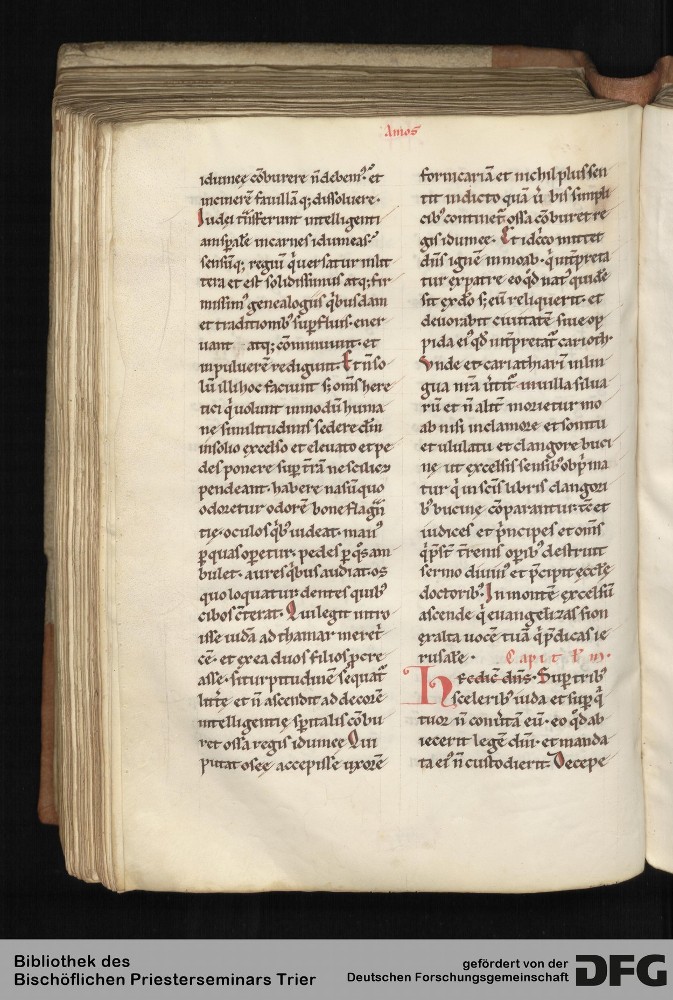 Amos
idumeę cōburere n̄ debem᷒. et
incinerē fauillāq; dissoluere.
Iudei trāsferunt intelligenti
am sp̄alē in carnes idumeas.
sensūq; regiū q̇ uersatur in litt
tera et est solidissimus atq; fir
missim᷒ genealogiis q̇busdam
et traditionib᷒ sup̄fluis. ener
uant atq; cōminuunt. et
in puluerē redigunt. Et n̄ so
lū illi hoc faciunt s; om̄s here
tici q̇ uolunt in modū huma
ne similitudinis sedere dm̄
in solio excelso et eleuato et pe
des ponere sup̄ t̄rā ne scilicz
pendeant. habere nasū quo
odoretur odorē bone flagn̄
tię. oculos q̇b᷒ uideat. man᷒
ꝑ quas oꝑetur. pedes ꝑ q̊s am
bulet. aures q̇bus audiat. os
quo loquatur dentes quib᷒
cibos c̄terat. Qui legit intro
isse iudā ad thamar meret̄
cē. et ex ea duos filios ꝓcre
asse. si turpitudinē sequat̄
litt̄ę et n̄ ascendit ad decorē
intelligentię sp̄italis cōbu
ret ossa regis idumeę Qui
putat oseę accepisse uxorē
fornicariā et nichil plus sen
tit in dicto quā u̇bis simpli
cib᷒ continet᷒ ossa cōburet re
gis idumeę. Et idc̄co mittet
dn̄s ignē in moab. q̇ int̄preta
tur ex patre eo qd̄ nat᷒ quidē
sit ex dō s; eū reliquerit. et
deuorabit ciuitatē siue op
pida ei᷒ qd̄ int̄pretat᷒ carioth.
Vnde et cariathiarī in lin
gua nr̄a u̇tit᷒ in uilla silua
rū et n̄ alit̄ morietur mo
ab nisi in clamore et sonitu
et ululatu et clangore buci
nę ut excelsis sensib᷒ opp̄ma
tur q̇ in sc̄is libris clangori
b᷒ bucine cōparantur. tc̄ et
iudices et p̄ncipes et om̄s
q̇ p̄st t̄renis oꝑib᷒ destruit
sermo diuin᷒ et p̄cipit ecclę
doctorib᷒. In montē excelsū
ascende q̇ euangelizas sion
exalta uocē tuā q̇ p̄dicas ie
rusalē. Capitl̄m.
Hęc dic̄ dn̄s. Sup trib᷒
scelerib᷒ iuda et sup q̇
tuor n̄ con̄utā eū. eo qd̄ ab
iecerit legē dn̄i. et manda
ta ei᷒ n̄ custodierit. Decepe
Bibliothek des
Bischöflichen Priesterseminars Trier
gefördert von der
Deutschen Forschungsgemeinschaft
DFG